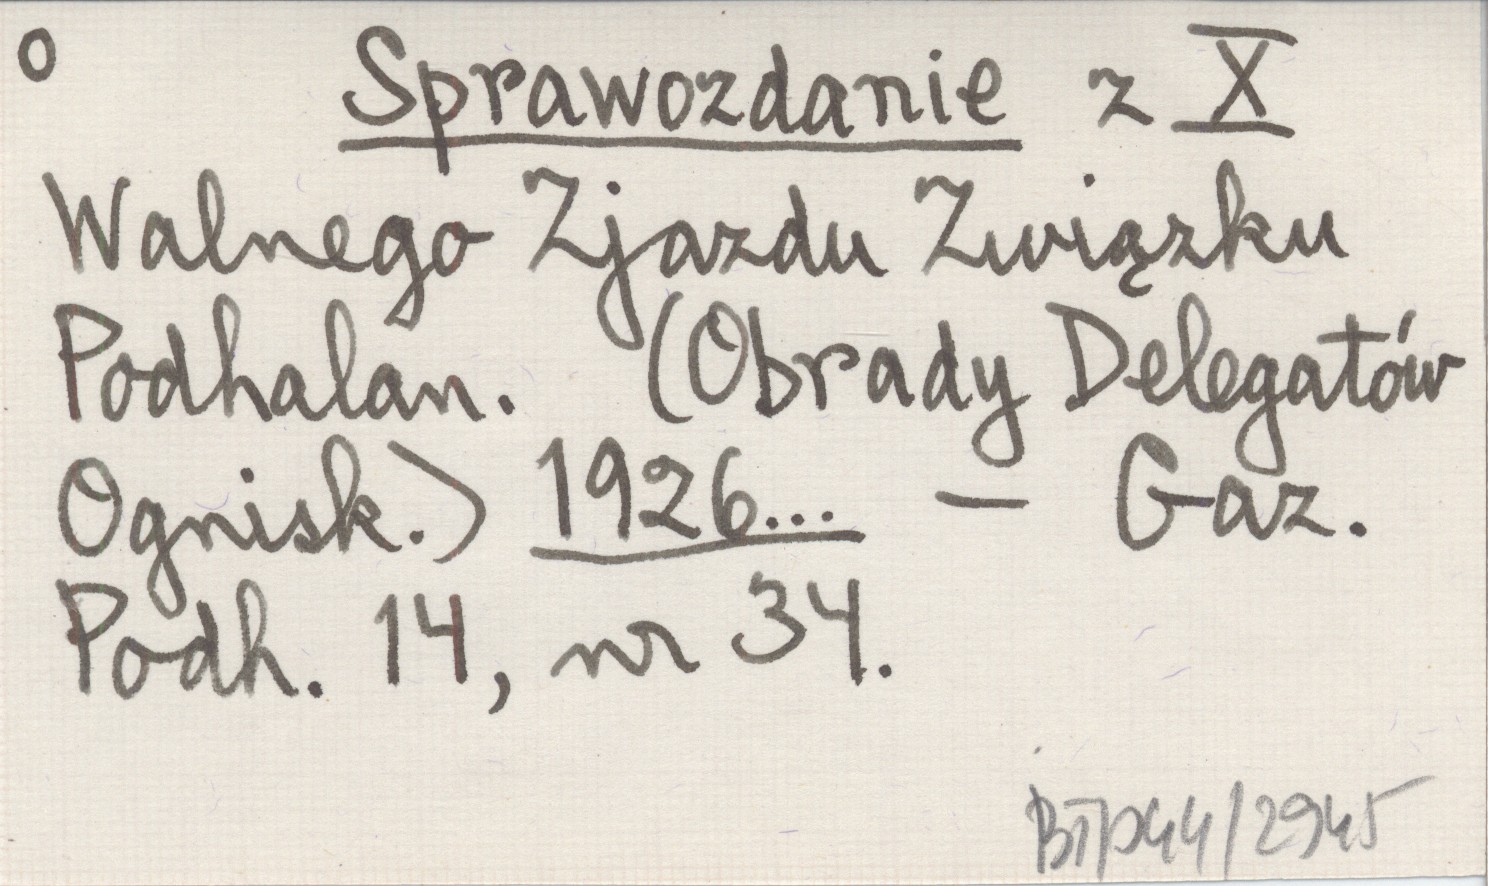 o Sprawozdanie z X
Walnego Zjazdu Związku
Podhalan. (Obrady Delegatów
Ognisk.) 1926... – Gaz.
Podh. 14, nr 34.